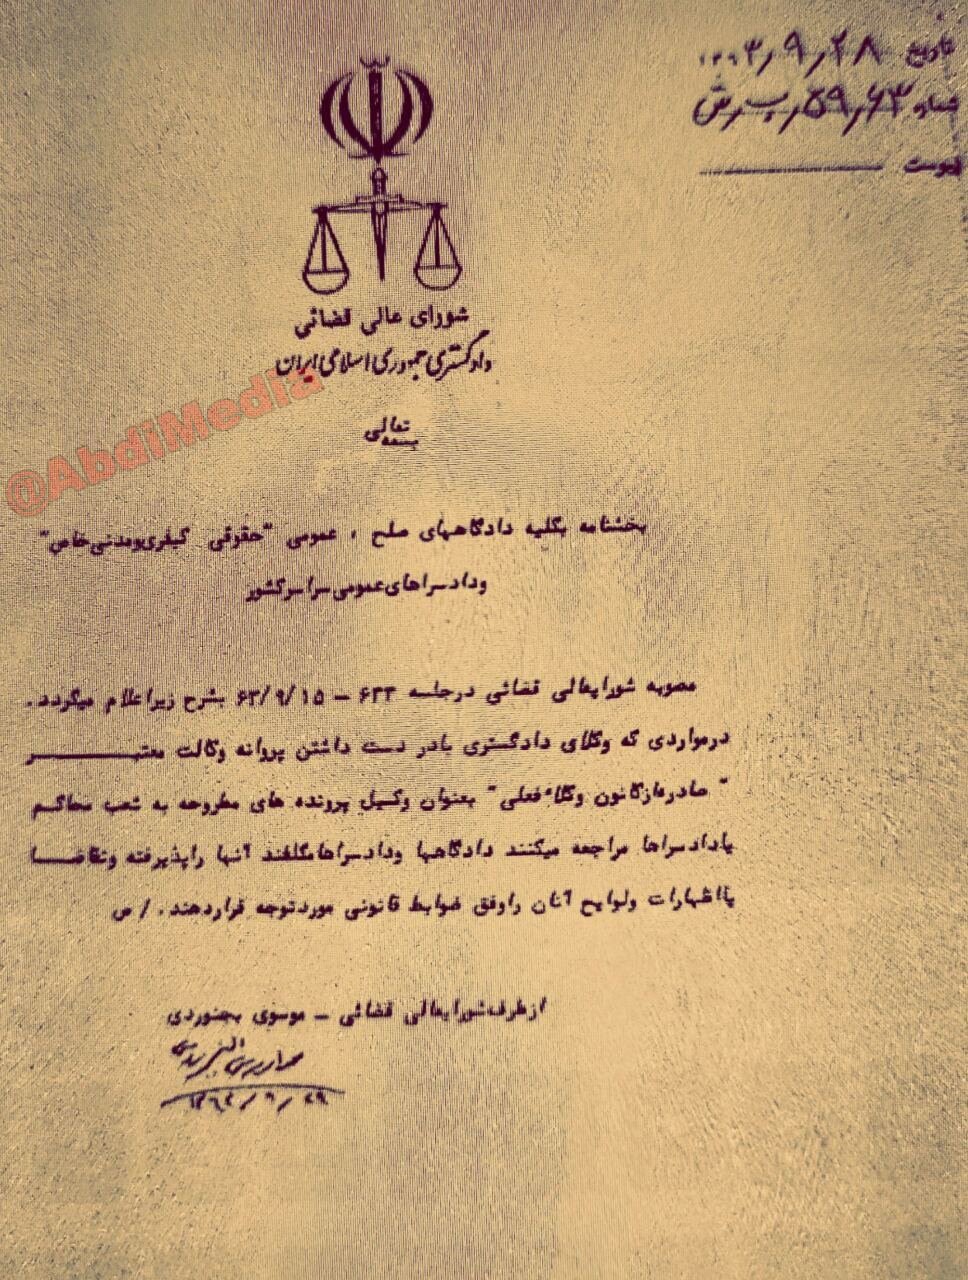 تاریخ ۱۳۶۳٫۹٫۲۸
شماره ۵۹٫۶۳٫ب٫ش
پیوست
شورای عالی قضائی
دادگستری جمهوری اسلامی ایران
بسمه تعالی
@AbdiMedia
بخشنامه بکلیه دادگاههای صلح ، عمومی "حقوقی کیفری و مدنی خاص"
ودادسراهای عمومی سراسر کشور
مصوبه شورایعالی قضائی در جلسه ۶۳۳ – ۶۳/۹/۱۵ بشرح زیر اعلام میگردد.
در مواردی که وکلای دادگستری با در دست داشتن پروانه وکالت معتبر
"صادره از کانون وکلاء فعلی" بعنوان وکیل پرونده های مطروحه به شعب محاکم
یا دادسراها مراجعه میکنند دادگاهها ودادسراها مکلفند آنها را پذیرفته وتقاضا
یا اظهارات ولوایح آنان را وفق ضوابط قانونی مورد توجه قرار دهند. / ص
از طرف شورایعالی قضائی – موسوی بجنوردی